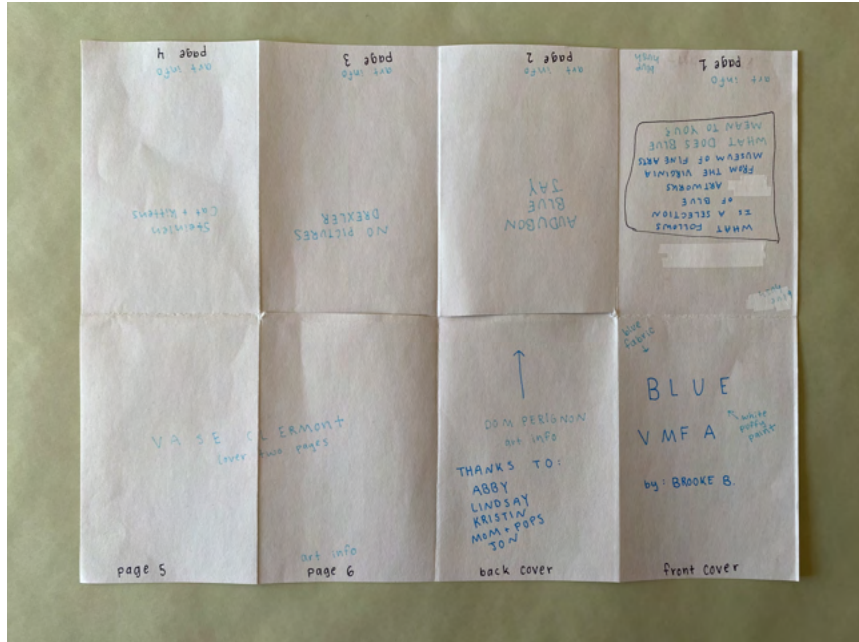 Steinlen
Cat + Kittens
art info
page 4
NO PICTURES
DREXLER
art info
page 3
AUDUBON
BLUE
JAY
art info
page 2
WHAT FOLLOWS
IS A SELECTION
OF BLUE
ARTWORKS
FROM THE VIRGINIA
MUSEUM OF FINE ARTS
WHAT DOES BLUE
MEAN TO YOU?
art info
page 1
VASE CLERMONT
(over two pages
page 5
art info
page 6
DOM PERIGNON
art info
THANKS TO:
ABBY
LINDSAY
KRISTIN
MOM + POPS
JON
back cover
blue
fabric
BLUE
VMFA
white
puffy
paint
by: BROOKE B.
front cover